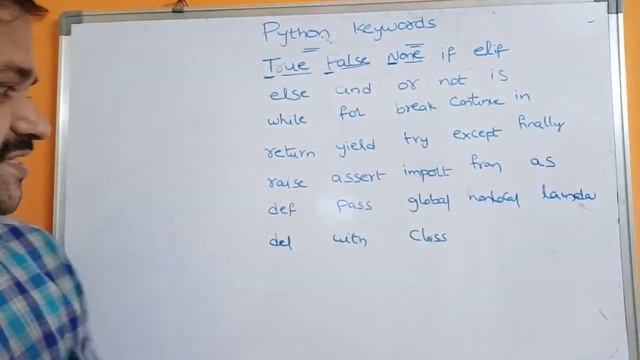 Python keywords
True False None if elif
else and or not is
while for break continue in
return yield try except finally
raise assert import from as
def pass global nonlocal lamda
del with class